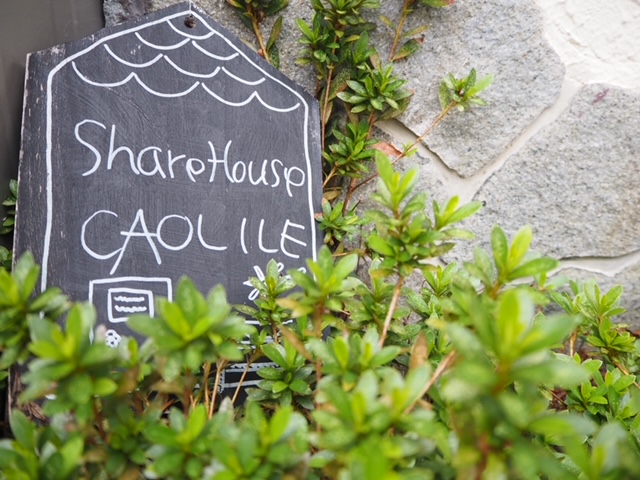 ShareHouse
CAOLILE